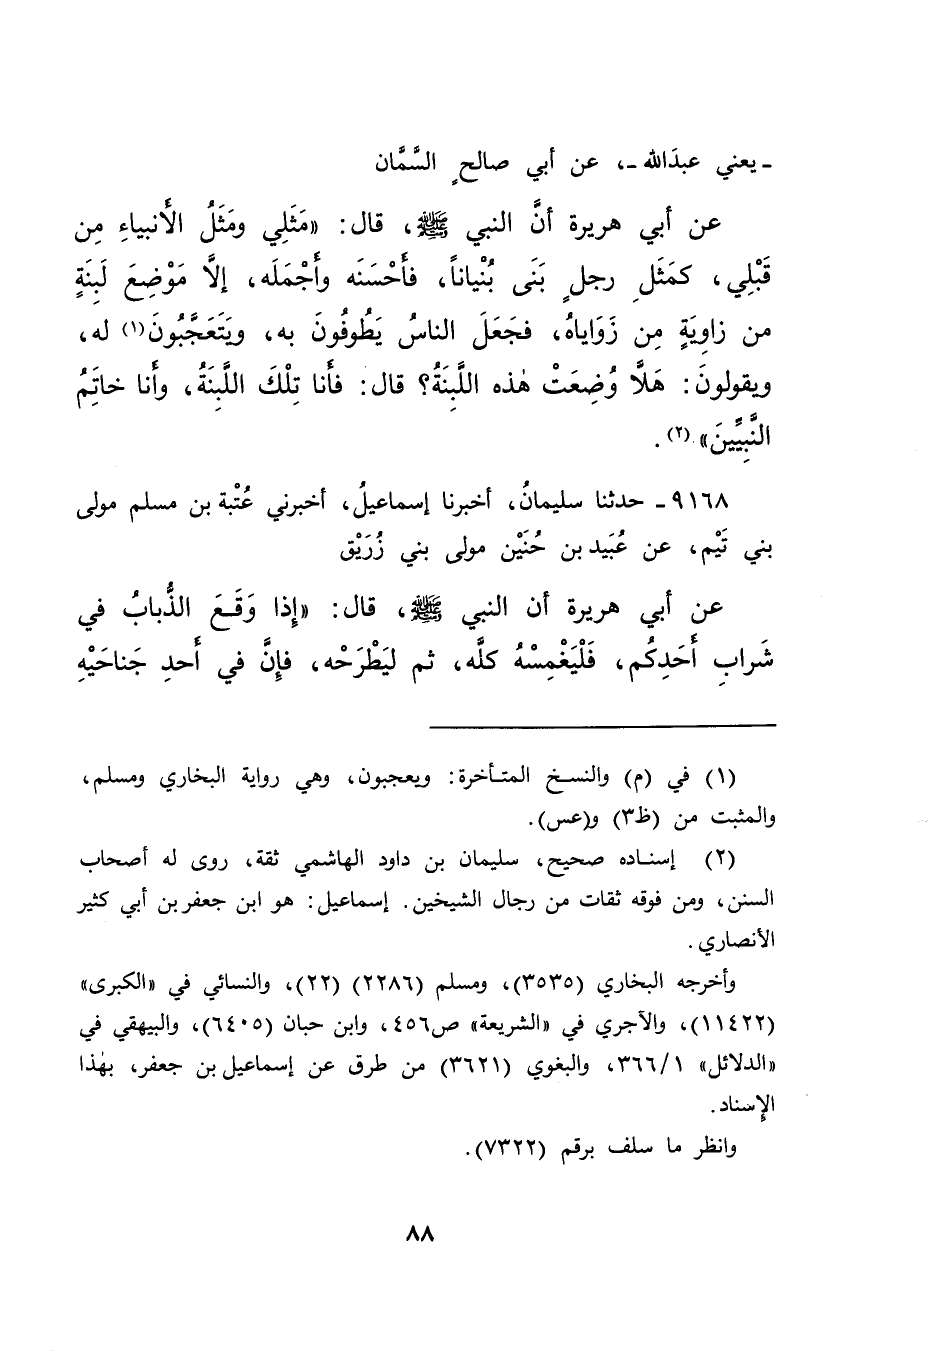 ـ يعني عبدَالله ـ، عن أبي صالحٍ السَّمَّان
عن أبي هريرة أنَّ النبي ﷺ، قال: «مَثَلِي ومَثَلُ الأَنبياءِ مِن
قَبْلِي، كمَثَلِ رجلٍ بَنَى بُنْياناً، فأَحْسَنَه وأَجْمَلَه، إلَّا مَوْضِعَ لَبِنَةٍ
من زاوِيَةٍ مِن زَوَاياهُ، فجَعَلَ الناسُ يَطُوفُونَ به، ويَتَعَجَّبُونَ(١) له،
ويقولونَ: هَلَّا وُضِعَتْ هٰذه اللَّبِنَةُ؟ قال: فأَنا تِلْكَ اللَّبِنَةُ، وأَنا خاتِمُ
النَّبِيِّينَ»(٢).
٩١٦٨ـ حدثنا سليمانُ، أخبرنا إسماعيلُ، أخبرني عُتْبة بن مسلم مولى
بني تَيْم، عن عُبَيد بن حُنَيْن مولى بني زُرَيْق
عن أبي هريرة أن النبي ﷺ، قال: «إذا وَقَعَ الذُّبابُ في
شَرابِ أَحَدِكُم، فَلْيَغْمِسْهُ كلَّه، ثم ليَطْرَحْه، فإنَّ في أَحدِ جَناحَيْهِ
(١) في (م) والنسخ المتأخرة: ويعجبون، وهي رواية البخاري ومسلم،
والمثبت من (ظ٣) و(عس).
(٢) إسناده صحيح، سليمان بن داود الهاشمي ثقة، روى له أصحاب
السنن، ومن فوقه ثقات من رجال الشيخين. إسماعيل: هو ابن جعفر بن أبي كثير
الأنصاري.
وأخرجه البخاري (٣٥٣٥)، ومسلم (٢٢٨٦) (٢٢)، والنسائي في «الكبرى»
(١١٤٢٢)، والآجري في «الشريعة» ص٤٥٦، وابن حبان (٦٤٠٥)، والبيهقي في
«الدلائل» ٣٦٦/١، والبغوي (٣٦٢١) من طرق عن إسماعيل بن جعفر، بهٰذا
الإسناد.
وانظر ما سلف برقم (٧٣٢٢).
٨٨